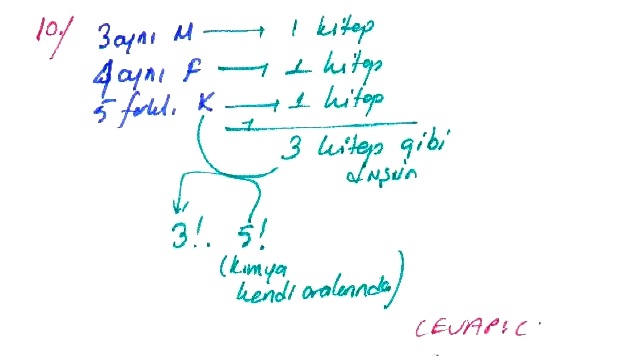 10./ 3 aynı M → 1 kitap
4 aynı F → 1 kitap
5 farkl. K → 1 kitap
3 kitap gibi
düşün
3!. 5!
(kimya
kendi aralarında)
CEVAP: C